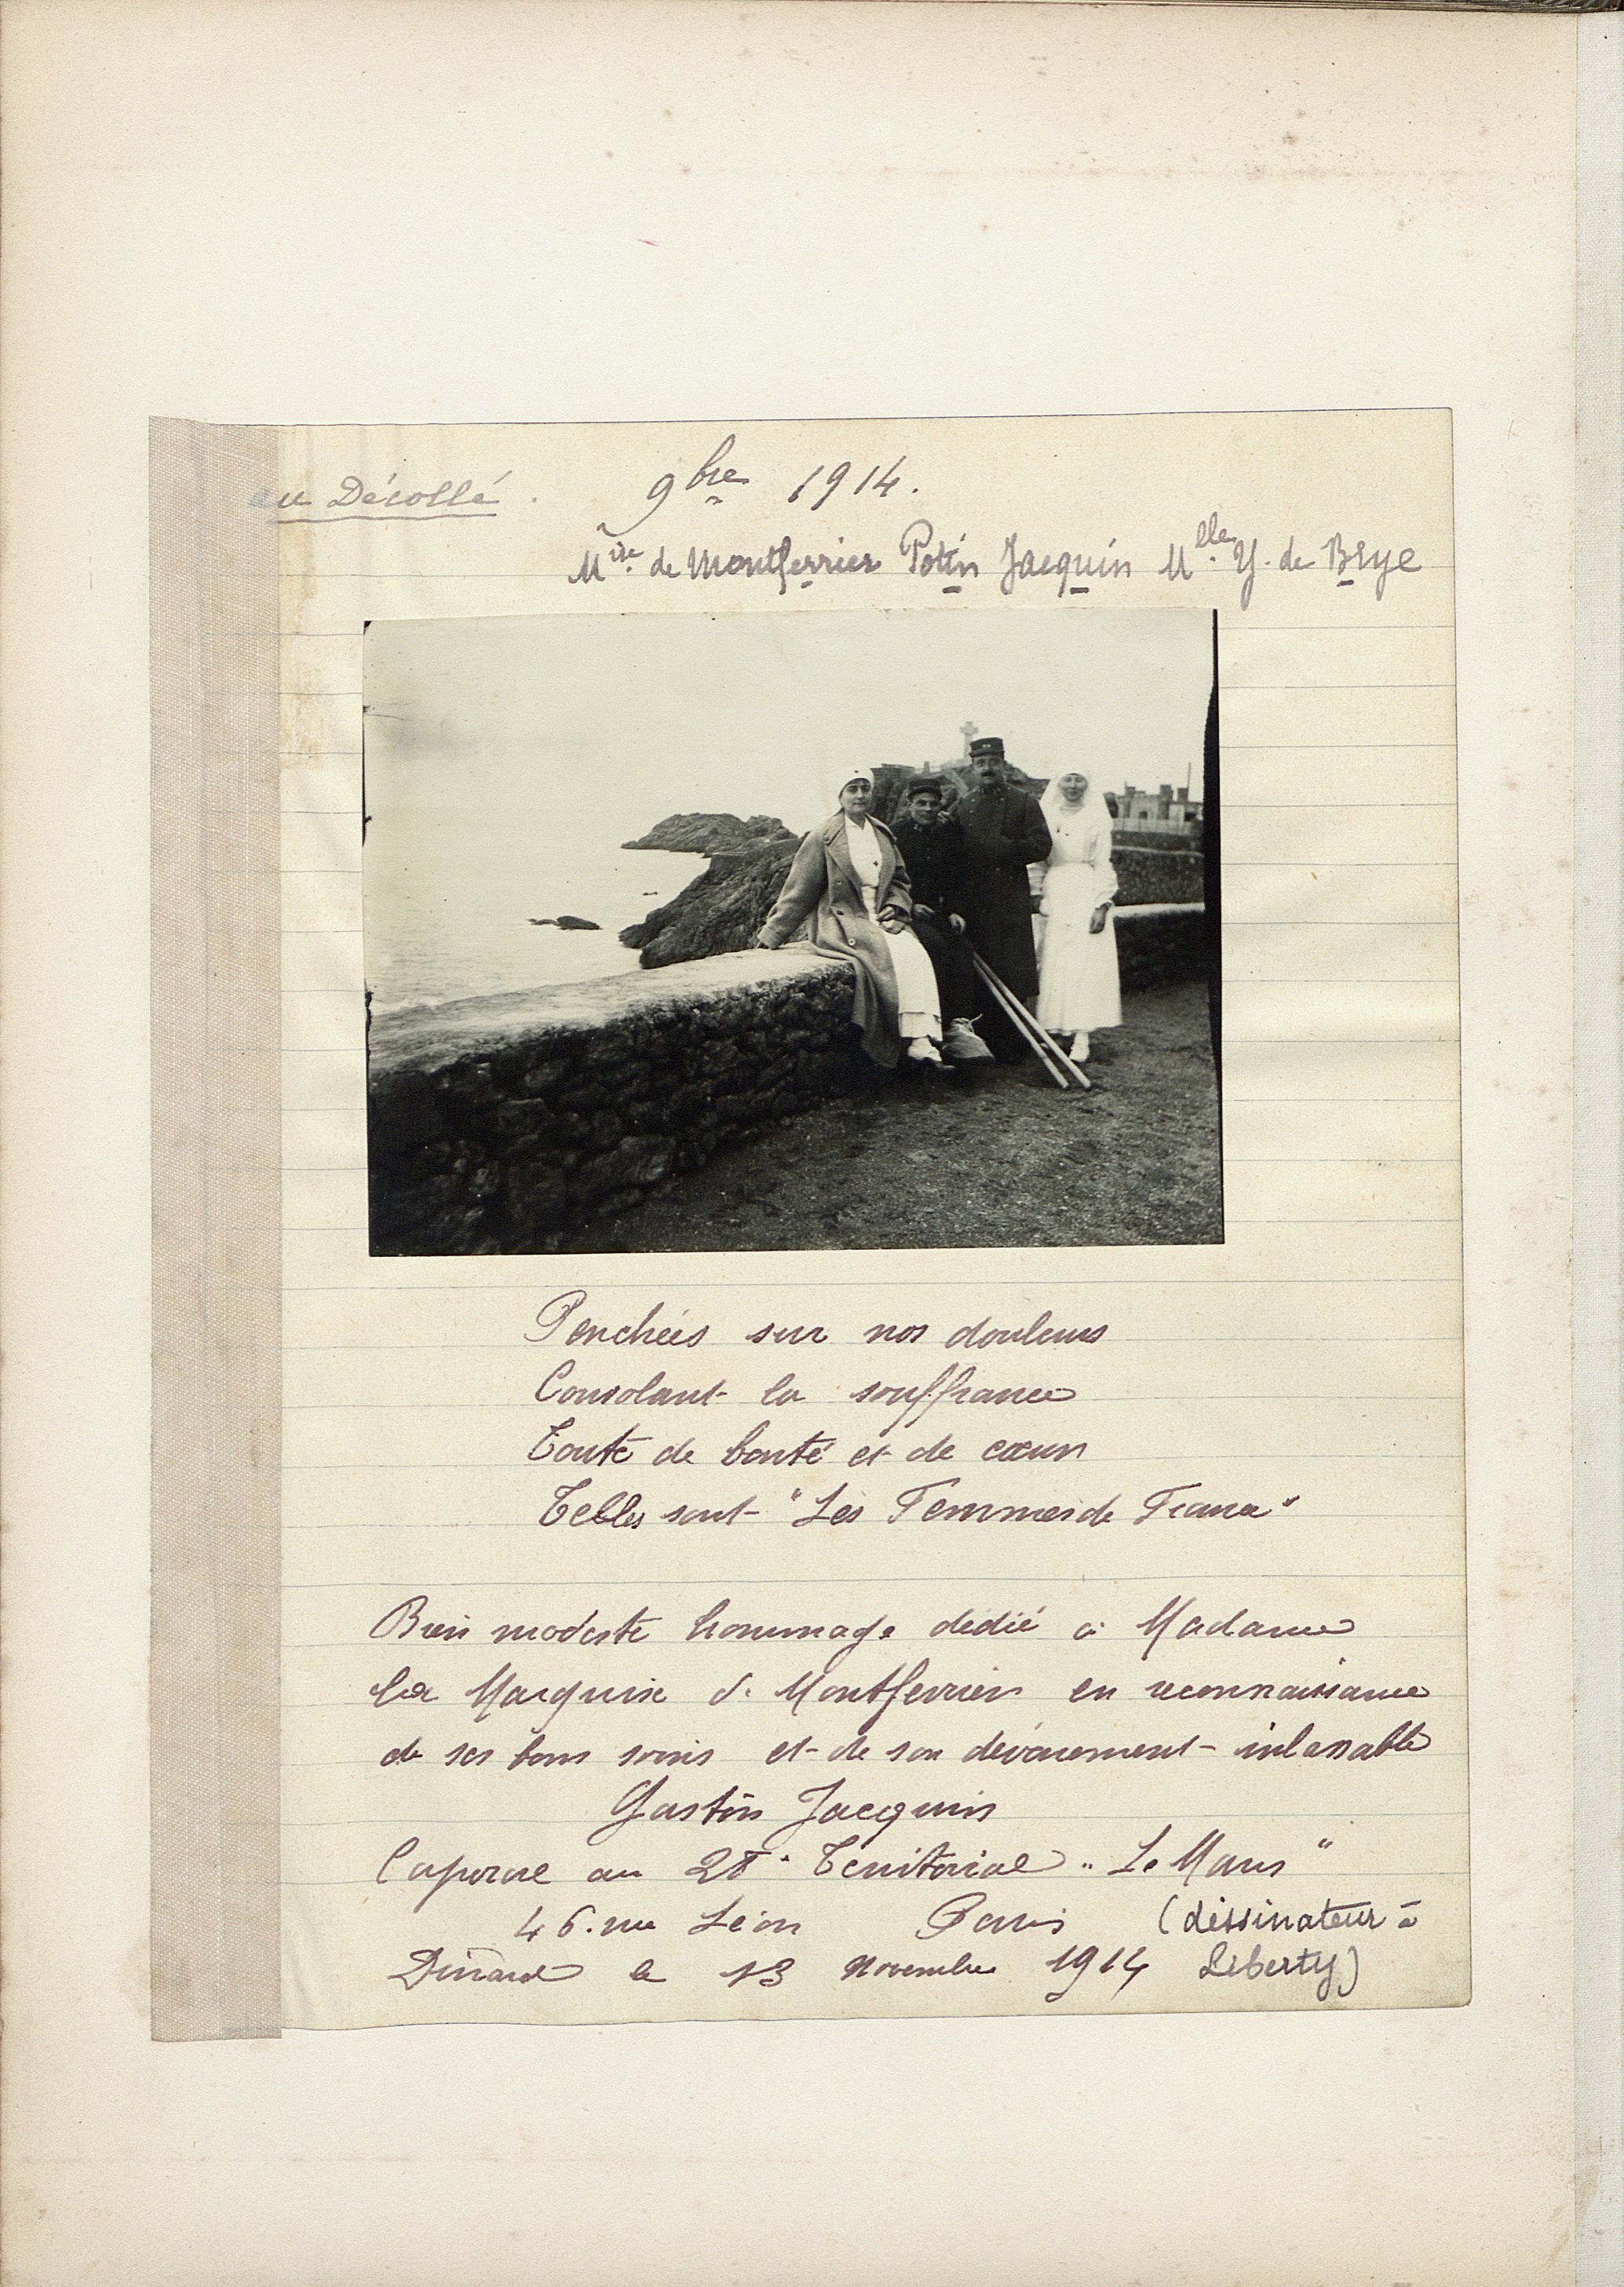 au Décollé. 9bre 1914.
Mise de Montferrier Potin Jacquin Mlle Y. de Brye
Penchées sur nos douleurs
Consolant la souffrance
Toute de bonté et de cœur
Telles sont "Les Femmes de France"
Bien modeste hommage dédié à Madame
la Marquise de Montferrier en reconnaissance
de ses bons soins et de son dévouement inlassable
Gaston Jacquin
Caporal au 28e Territorial "Le Mans"
46. rue Léon Paris (dessinateur à
Dinard le 13 novembre 1914 Liberty)